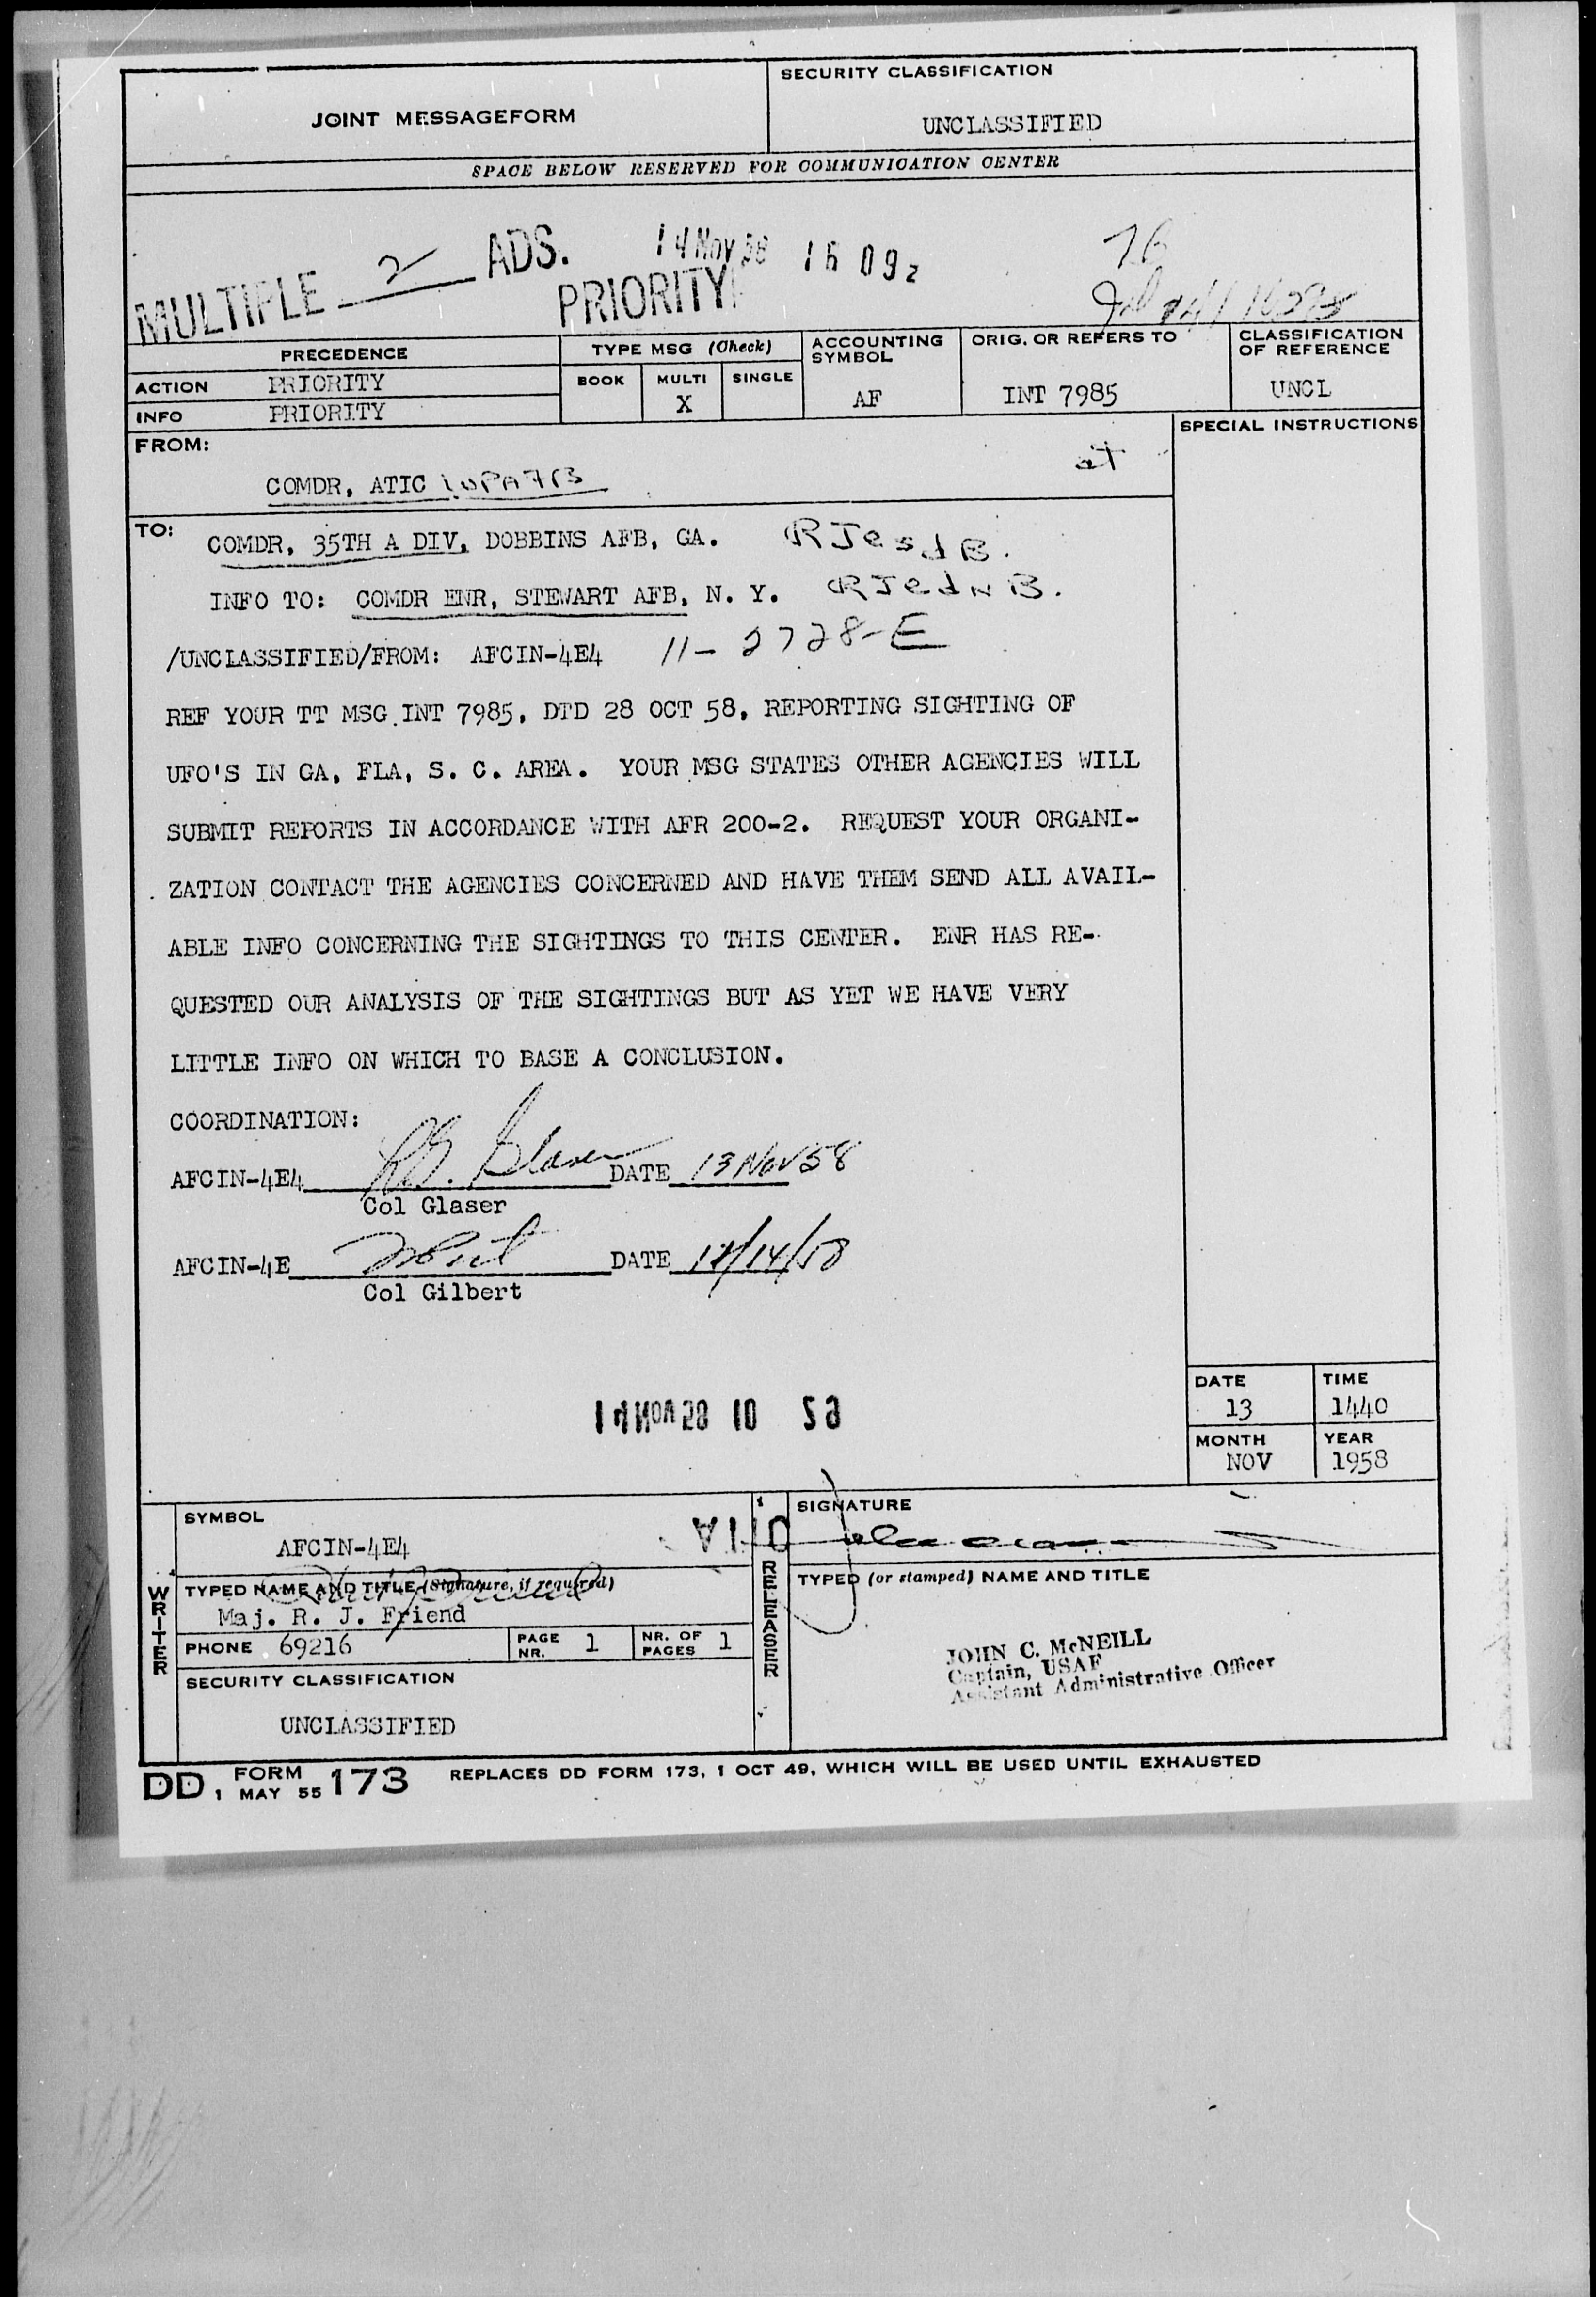 JOINT MESSAGEFORM
SECURITY CLASSIFICATION
UNCLASSIFIED
SPACE BELOW RESERVED FOR COMMUNICATION CENTER
MULTIPLE 2 ADS.
14 NOV 58 16 09z
PRIORITY
PRECEDENCE
ACTION PRIORITY
INFO PRIORITY
TYPE MSG (Check)
BOOK MULTI SINGLE
X
ACCOUNTING SYMBOL
AF
ORIG. OR REFERS TO
INT 7985
CLASSIFICATION OF REFERENCE
UNCL
FROM:
COMDR, ATIC
SPECIAL INSTRUCTIONS
TO:
COMDR, 35TH A DIV, DOBBINS AFB, GA. RJesdB.
INFO TO: COMDR ENR, STEWART AFB, N. Y. RJednB.
/UNCLASSIFIED/FROM: AFCIN-4E4 11-2728-E
REF YOUR TT MSG INT 7985, DTD 28 OCT 58, REPORTING SIGHTING OF
UFO'S IN GA, FLA, S. C. AREA. YOUR MSG STATES OTHER AGENCIES WILL
SUBMIT REPORTS IN ACCORDANCE WITH AFR 200-2. REQUEST YOUR ORGANI-
ZATION CONTACT THE AGENCIES CONCERNED AND HAVE THEM SEND ALL AVAIL-
ABLE INFO CONCERNING THE SIGHTINGS TO THIS CENTER. ENR HAS RE-
QUESTED OUR ANALYSIS OF THE SIGHTINGS BUT AS YET WE HAVE VERY
LITTLE INFO ON WHICH TO BASE A CONCLUSION.
COORDINATION:
AFCIN-4E4 Glaser DATE 13 Nov 58
Col Glaser
AFCIN-4E DATE
Col Gilbert
14 NOV 58 10 59
DATE 13
TIME 1440
MONTH NOV
YEAR 1958
WRITER
SYMBOL
AFCIN-4E4
TYPED NAME AND TITLE (Signature, if required)
Maj. R. J. Friend
PHONE 69216
PAGE NR. 1
NR. OF PAGES 1
SECURITY CLASSIFICATION
UNCLASSIFIED
RELEASER
SIGNATURE
TYPED (or stamped) NAME AND TITLE
JOHN C. McNEILL
Captain, USAF
Assistant Administrative Officer
DD FORM 1 MAY 55 173 REPLACES DD FORM 173, 1 OCT 49, WHICH WILL BE USED UNTIL EXHAUSTED